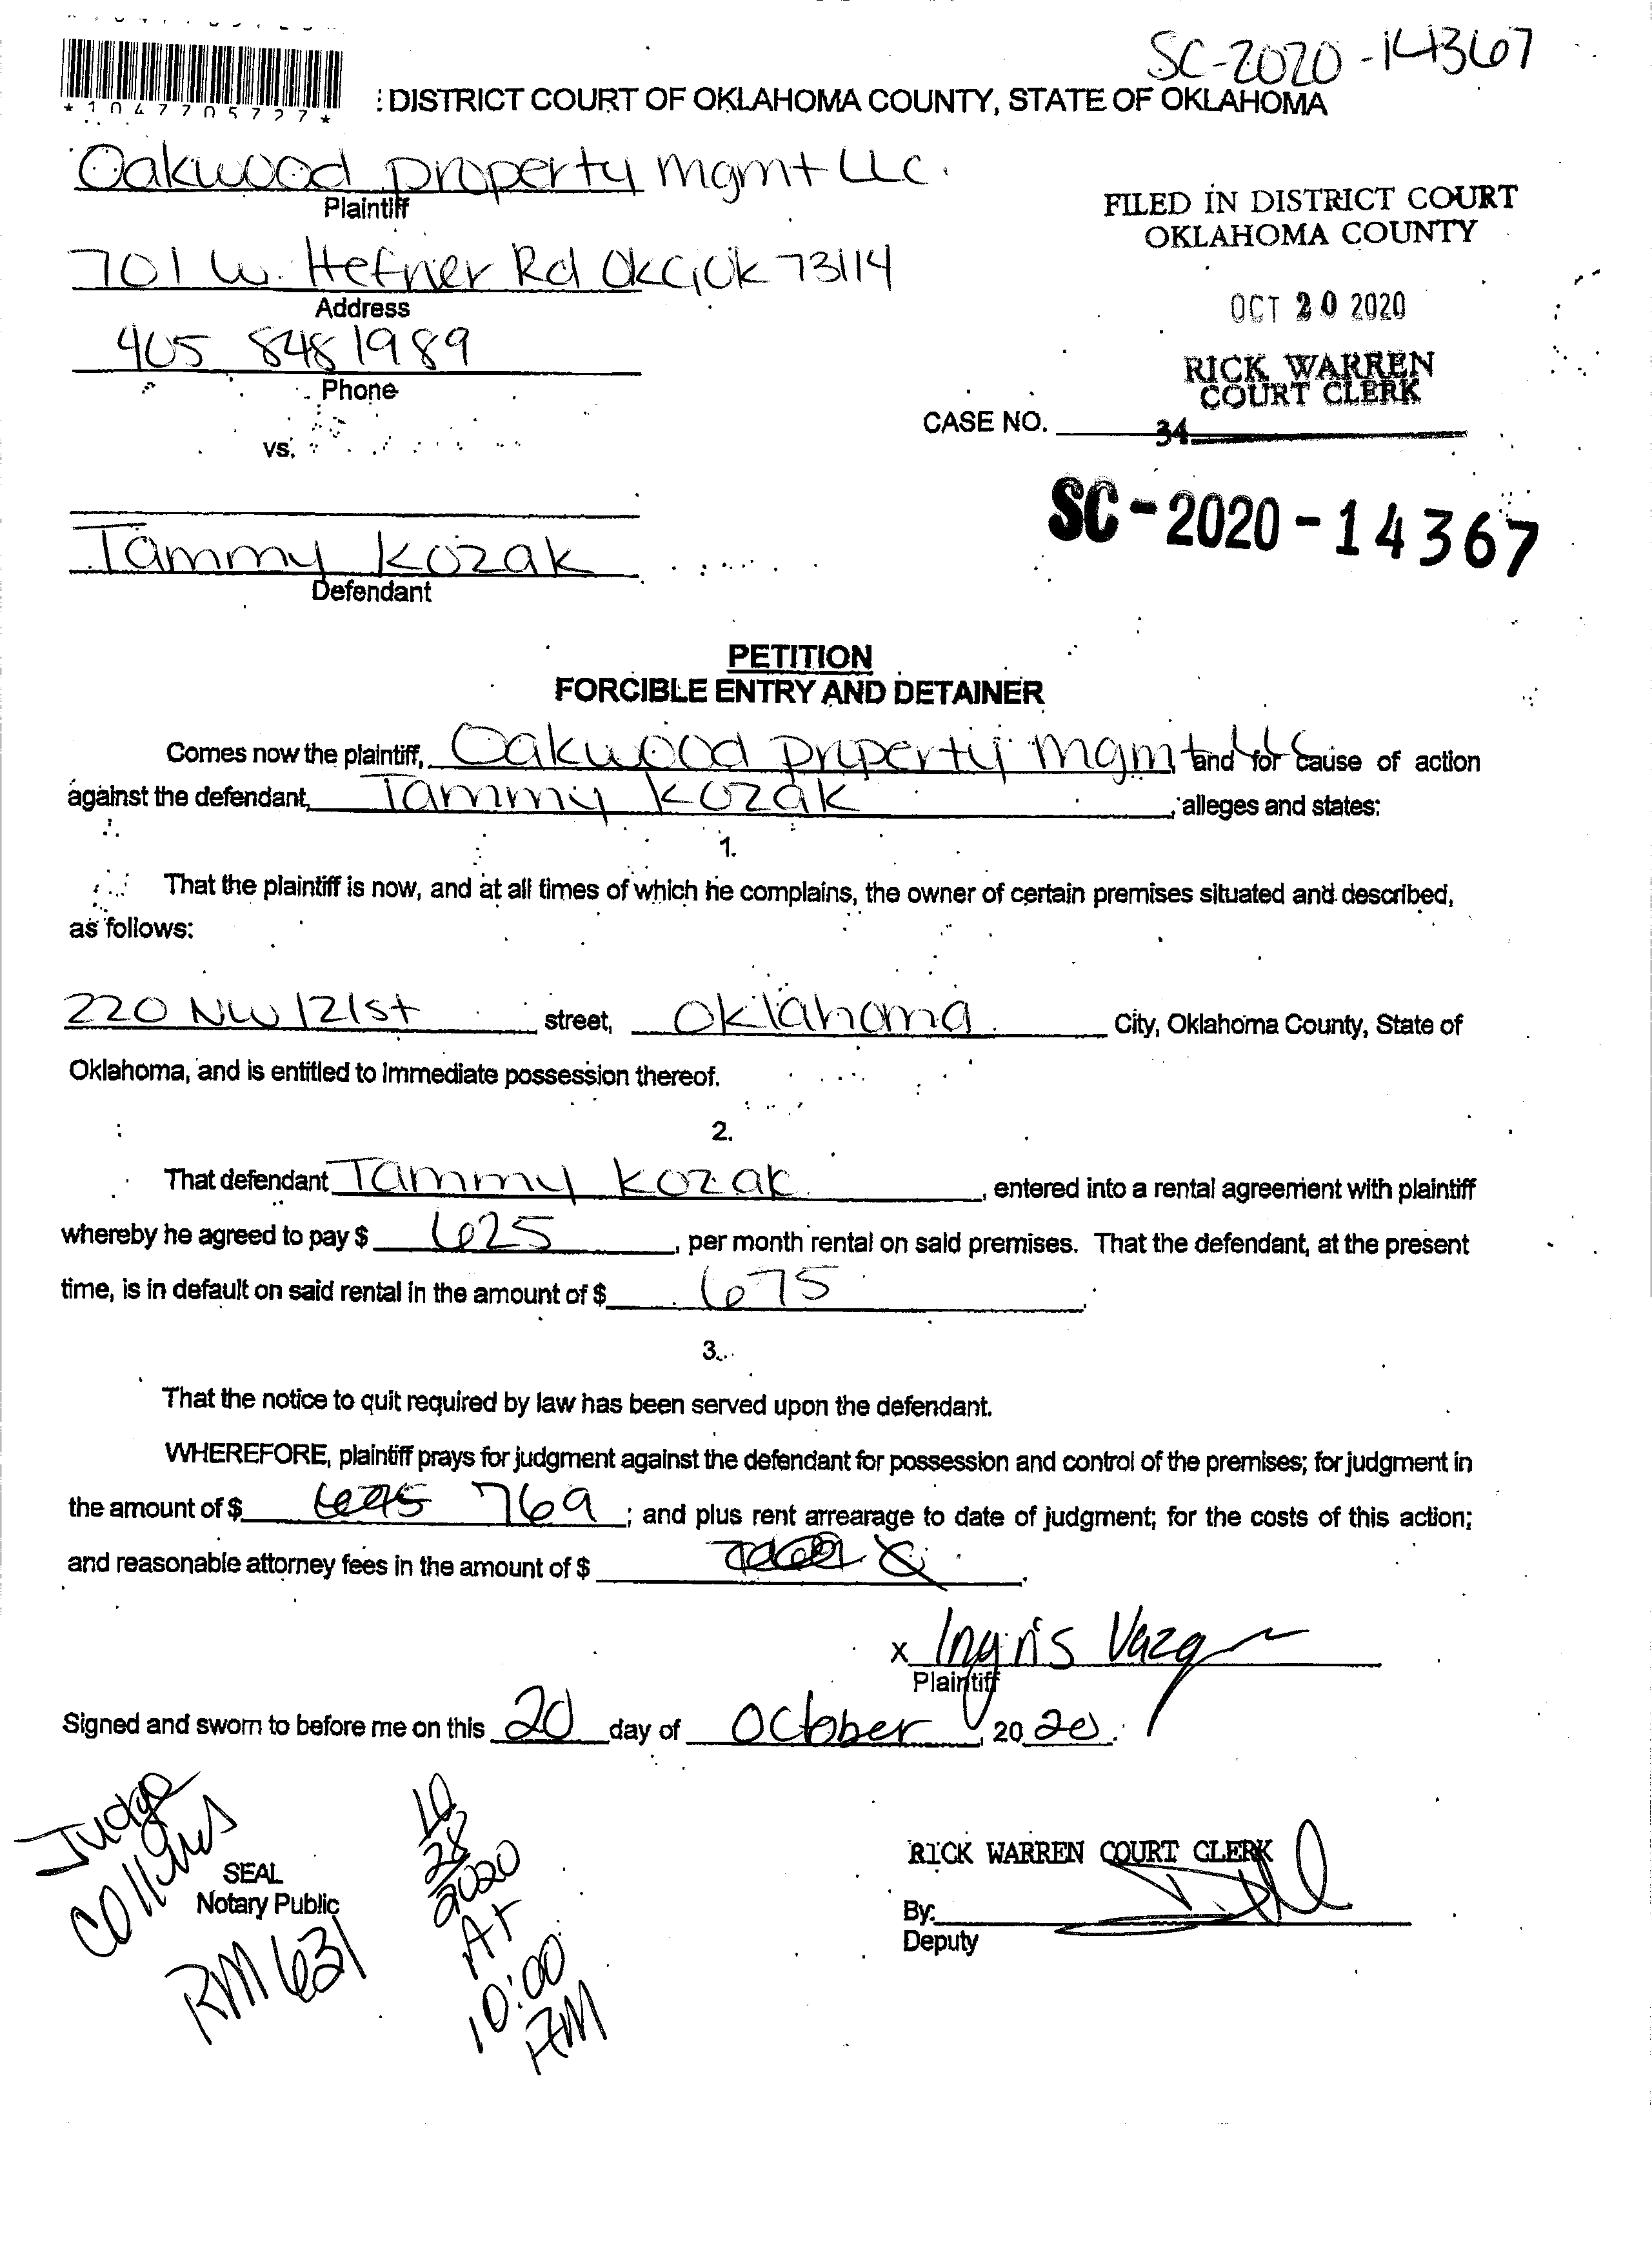 SC-2020-14367
*1047705727*
: DISTRICT COURT OF OKLAHOMA COUNTY, STATE OF OKLAHOMA
Oakwood property mgmt LLC.
Plaintiff
FILED IN DISTRICT COURT
OKLAHOMA COUNTY
701 W. Hefner Rd OKC, OK 73114
Address
OCT 20 2020
405 848 1989
Phone
RICK WARREN
COURT CLERK
CASE NO.
34
vs.
SC-2020-14367
Tammy Kozak
Defendant
PETITION
FORCIBLE ENTRY AND DETAINER
Comes now the plaintiff, Oakwood property mgmt LLC and for cause of action
against the defendant, Tammy Kozak, alleges and states:
1.
That the plaintiff is now, and at all times of which he complains, the owner of certain premises situated and described,
as follows:
220 NW 121st street, Oklahoma City, Oklahoma County, State of
Oklahoma, and is entitled to immediate possession thereof.
2.
That defendant Tammy Kozak, entered into a rental agreement with plaintiff
whereby he agreed to pay $ 625, per month rental on said premises. That the defendant, at the present
time, is in default on said rental in the amount of $ 675.
3.
That the notice to quit required by law has been served upon the defendant.
WHEREFORE, plaintiff prays for judgment against the defendant for possession and control of the premises; for judgment in
the amount of $ 769; and plus rent arrearage to date of judgment; for the costs of this action;
and reasonable attorney fees in the amount of $
x Ingris
Plaintiff
Signed and sworn to before me on this 20 day of October, 2020.
Judge
Collins
SEAL
Notary Public
RM 631
10
28
2020
At
10:00
AM
RICK WARREN COURT CLERK
By:
Deputy